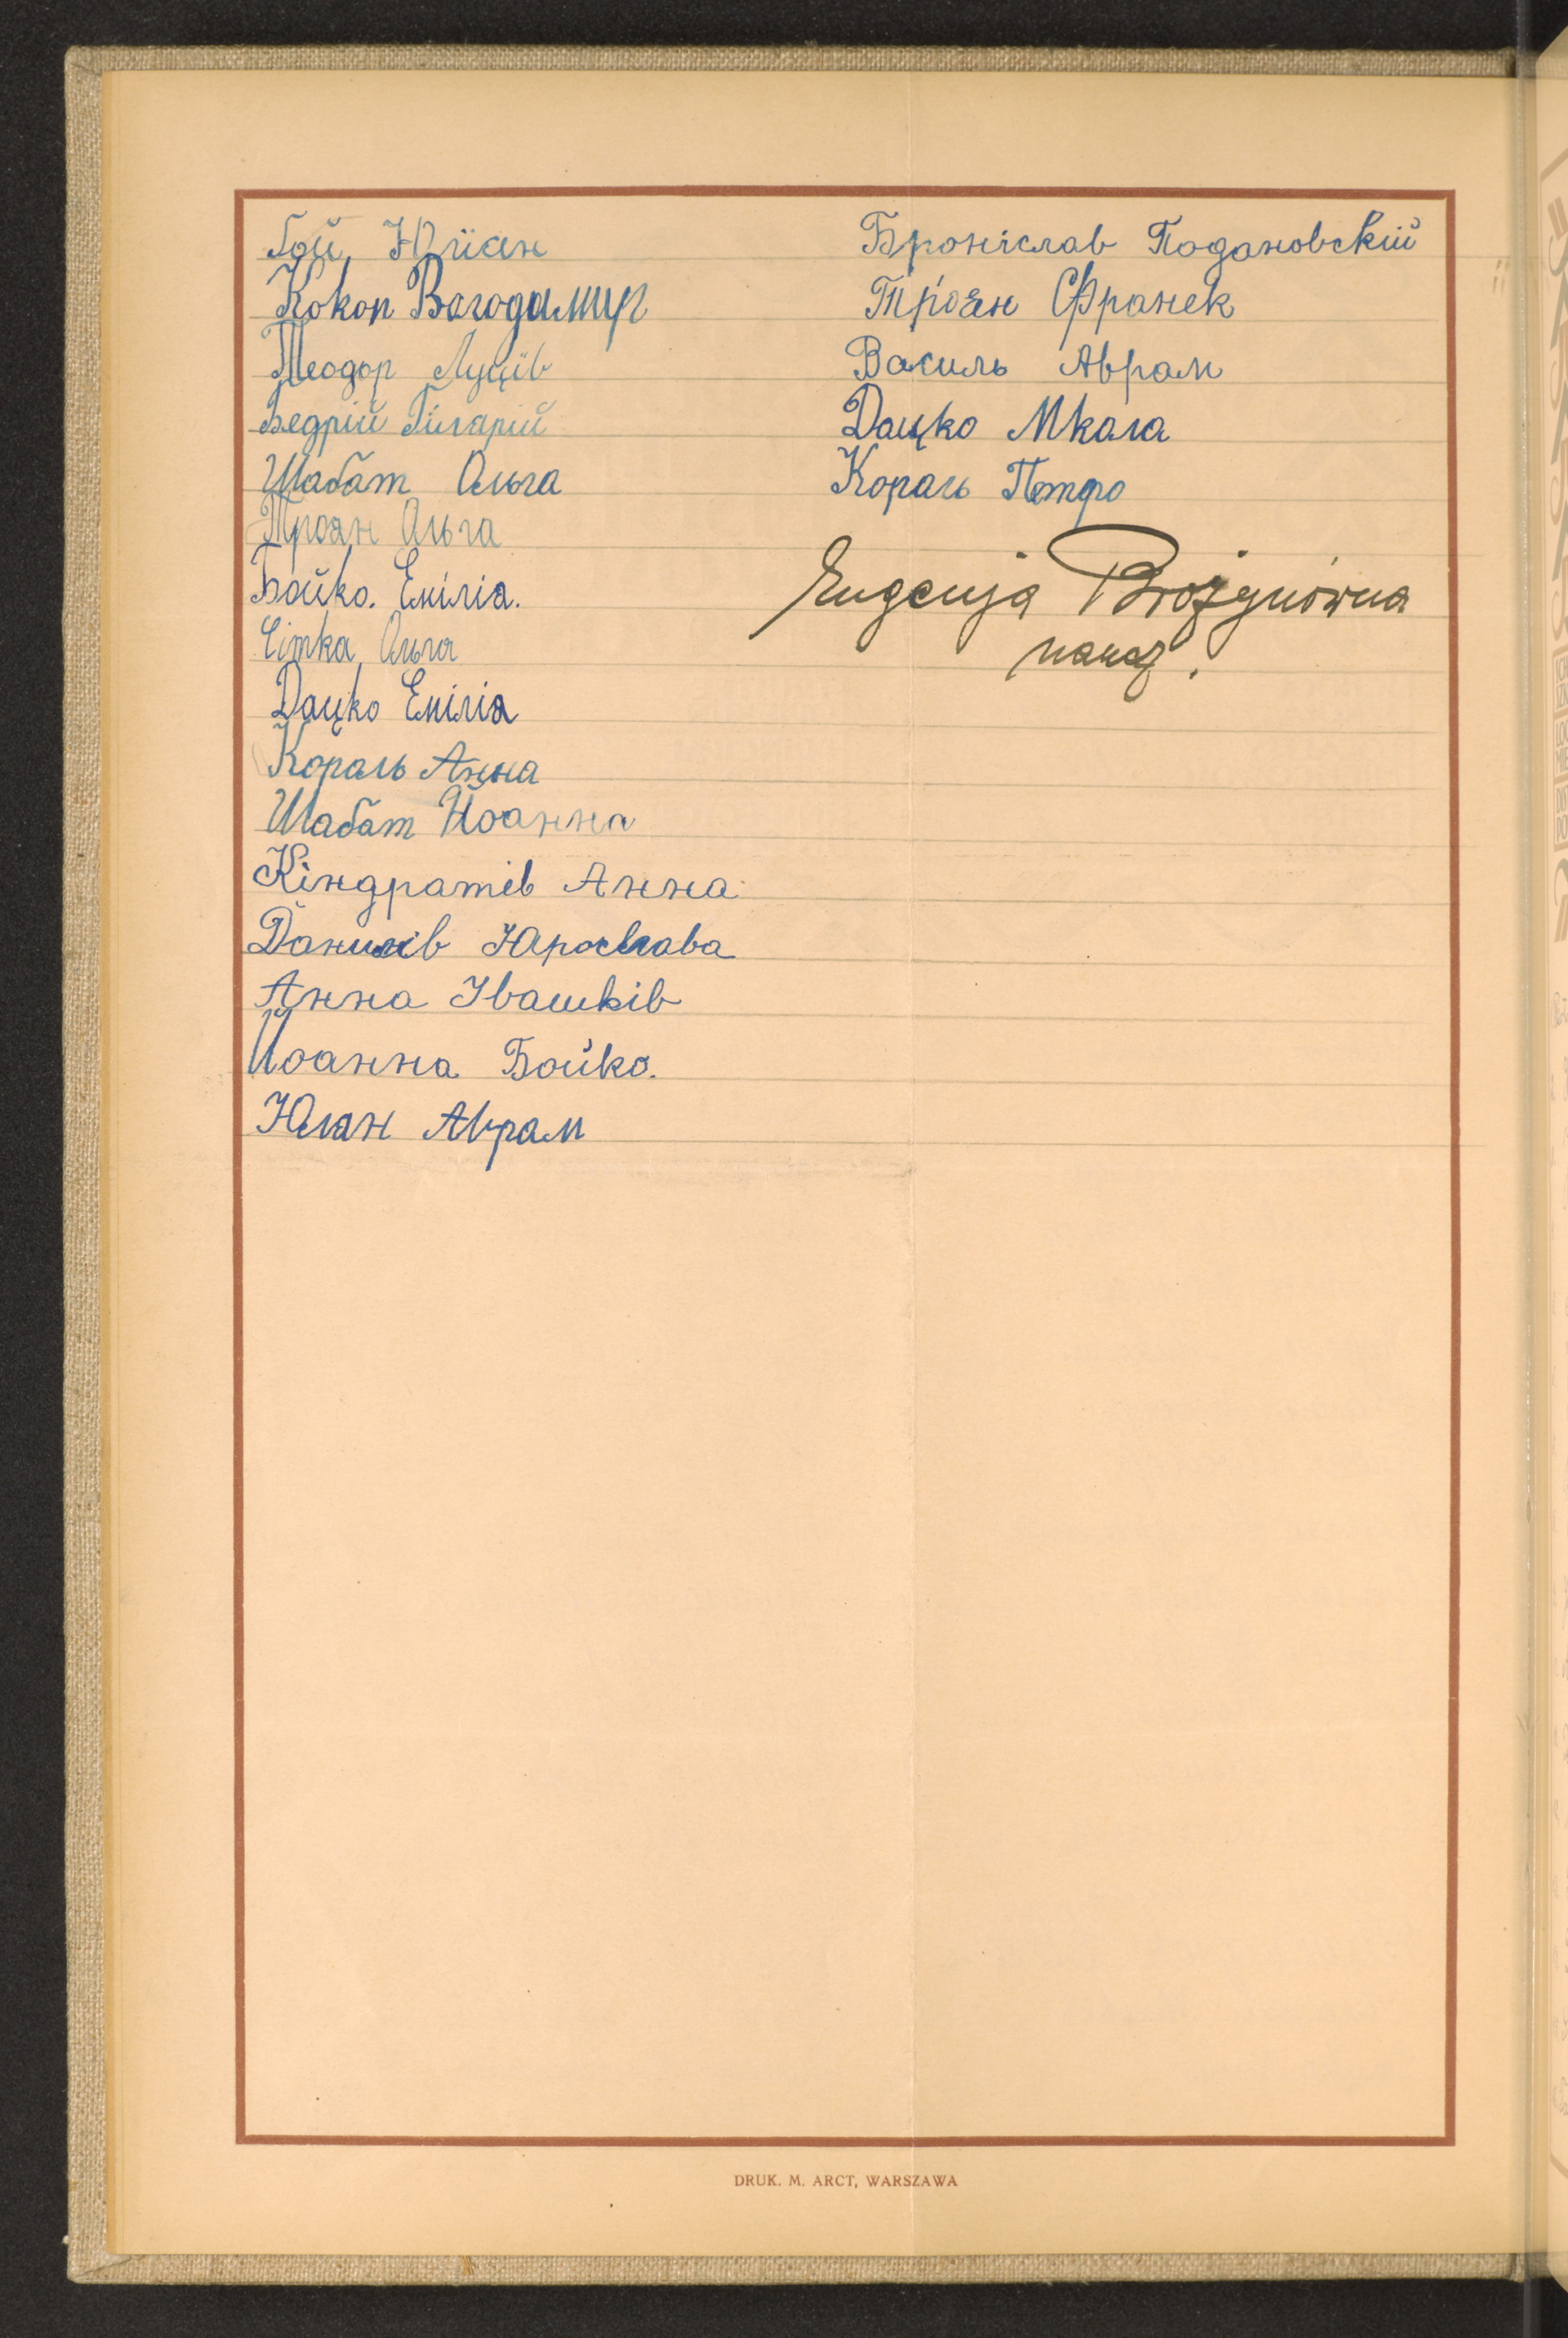 Гой Юліян
Кокоп Володимир
Теодор Луців
Бедрій Гілярій
Шабат Ольга
Троян Ольга
Бойко. Емілія.
Сітка Ольга
Дацко Емілія
Кораль Анна
Шабат Йоанна
Кіндратів Анна
Данилів Юрослава
Анна Івашків
Йоанна Бойко.
Юлян Аврам
Броніслав Подановскій
Троян Франек
Василь Аврам
Дацко Мкола
Кораль Петро
Eugenja
naucz.
DRUK. M. ARCT, WARSZAWA